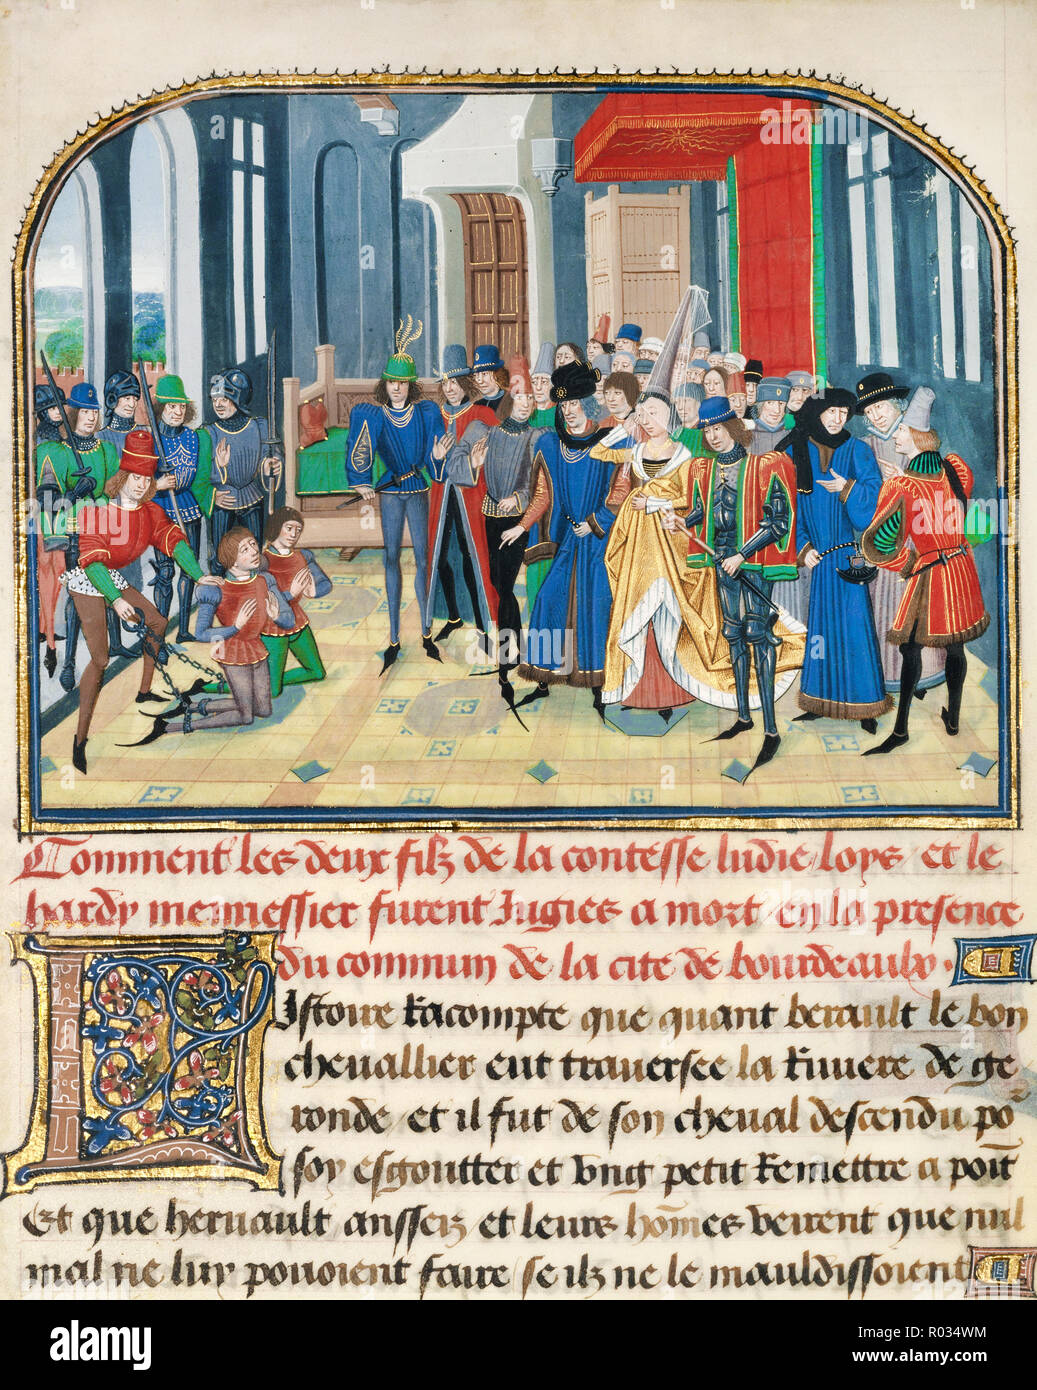 Comment les deux filz de la contesse ludie / loys / et le
hardy mennessier furent Jugies a mort en la presence
du commun de la cite de bourdeaulx .
Listoire Racompte que quant berault le bon
chevallier eut traversee la Riviere de ge
ronde / et il fut de son cheval descendu po~
soy esgoutter et ung petit Remettre a point
Et que heruault ansseiz et leurs hommes veirent que nul
mal ne luy povoient faire / se ilz ne le mauldissoient
a
alamy
alamy stock photo
R034WM
www.alamy.com